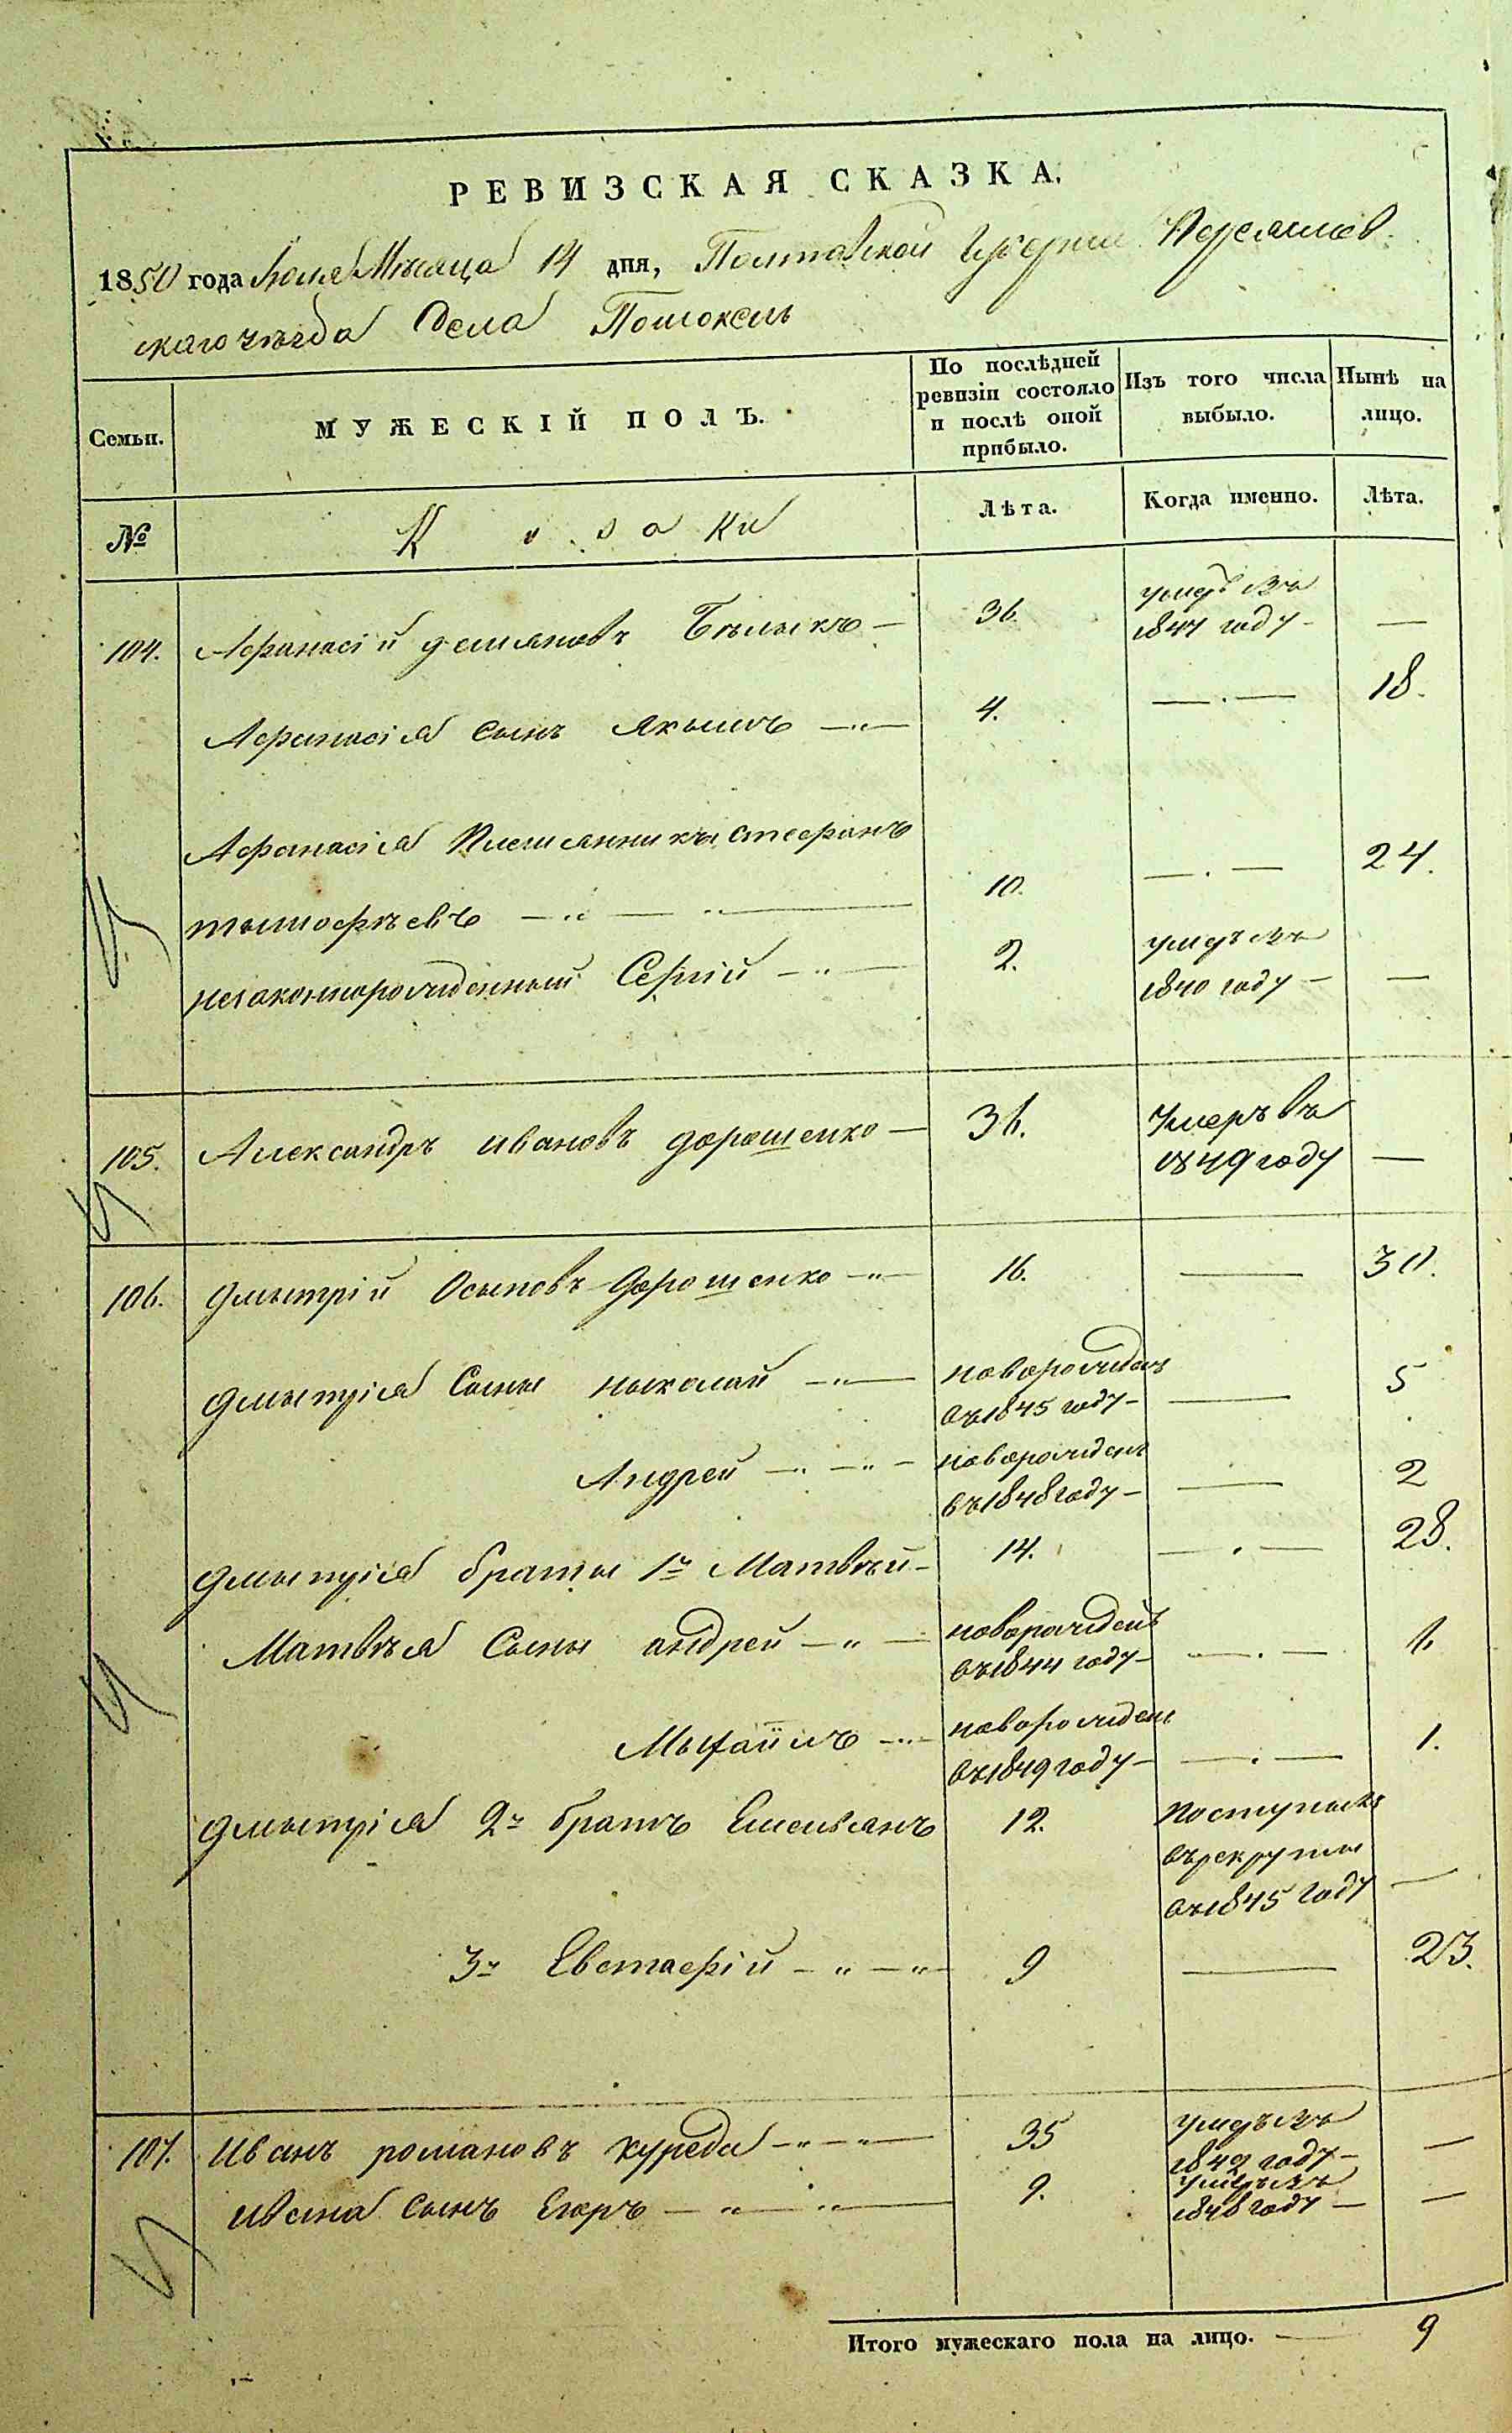 РЕВИЗСКАЯ СКАЗКА.
1850 года Июля Мѣсяца 14 дня, Полтавской Губернии Переяслав
скаго уѣзда Села Помоклъ
Семьи. МУЖЕСКІЙ ПОЛЪ. По послѣдней ревизіи состояло и послѣ оной прибыло. Изъ того числа выбыло. Нынѣ на лицо.
№ Козаки Лѣта. Когда именно. Лѣта.
104. Афанасій демяновъ Бѣлыкъ — 36. умеръ въ 1847 году — —
Афанасія сынъ Якымъ — 4. — 18.
Афанасія Племянникъ Стефанъ
тымофѣевъ — 10. — 24.
незаконнорожденный Сергій — 2. умеръ въ 1840 году — —
105. Александръ ивановъ дорошенко — 36. Умеръ въ 1849 году —
106. дмытрій Осыповъ дорошенко — 16. — 30.
дмытрія Сыны ныколай — новорожденъ въ 1845 году — — 5
Андрей — новорожденъ въ 1848 году — — 2
дмытрія братья 1й Матвѣй — 14. — 28.
Матвѣя Сыны андрей — новорожденъ въ 1844 году — — 6.
Мыхаилъ — новорожден въ 1849 году — — 1.
дмытрія 2й братъ Емельянъ 12. поступылъ
въ рекруты
въ 1845 году —
3й Евстафій — 9 — 23.
107. Иванъ романовъ куреда — 35 умеръ въ 1842 году — —
ивана сынъ Егоръ — 9. умеръ въ 1848 году — —
Итого мужескаго пола на лицо. — 9